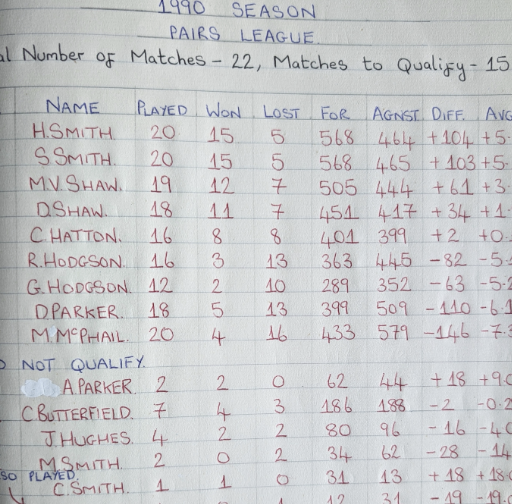 1990 SEASON
PAIRS LEAGUE
Number of Matches - 22, Matches to Qualify - 15
NAME PLAYED WON LOST FOR AGNST DIFF. AVG
H.SMITH 20 15 5 568 464 +104 +5.
S.SMITH. 20 15 5 568 465 +103 +5.
M.V.SHAW. 19 12 7 505 444 +61 +3.
D.SHAW. 18 11 7 451 417 +34 +1.
C.HATTON. 16 8 8 401 399 +2 +0.
R.HODGSON. 16 3 13 363 445 -82 -5.
G.HODGSON. 12 2 10 289 352 -63 -5.2
D.PARKER. 18 5 13 399 509 -110 -6.1
M.McPHAIL. 20 4 16 433 579 -146 -7.3
NOT QUALIFY.
A.PARKER 2 2 0 62 44 +18 +9.0
C.BUTTERFIELD. 7 4 3 186 188 -2 -0.2
J.HUGHES 4 2 2 80 96 -16 -4.0
M.SMITH. 2 0 2 34 62 -28 -14
SO PLAYED.
C.SMITH. 1 1 0 31 13 +18 +18.0